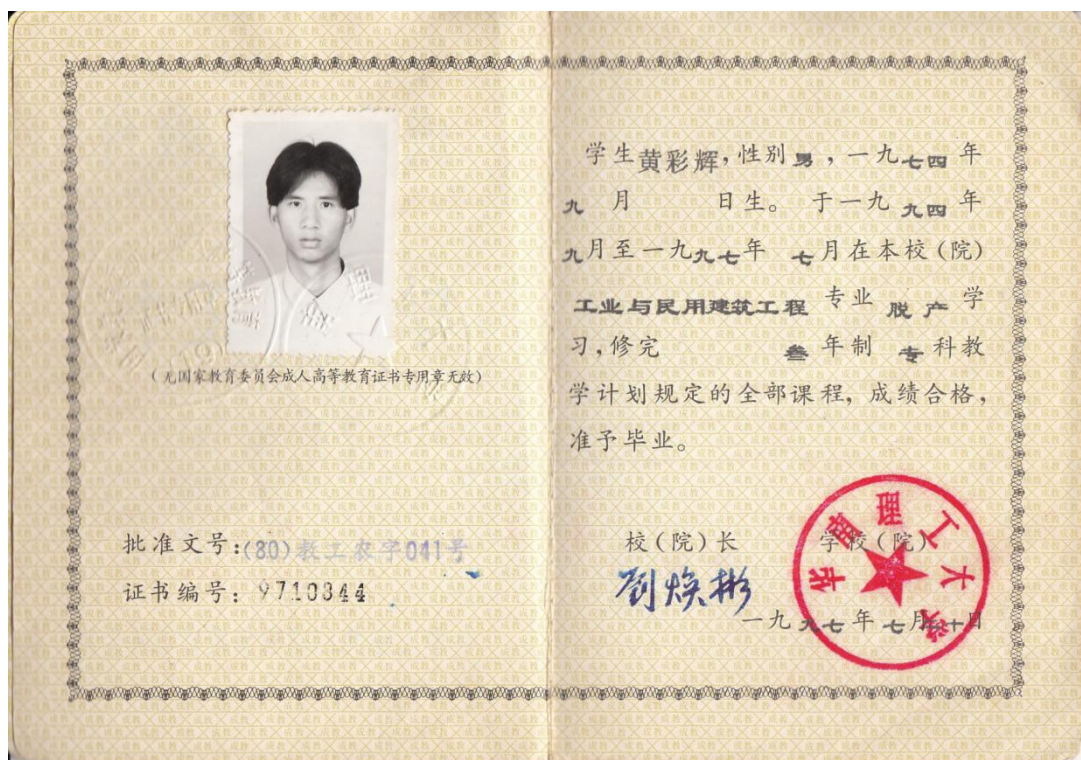 (无国家教育委员会成人高等教育证书专用章无效)
批准文号:(80)教工农字041号
证书编号:9710844
学生黄彩辉,性别男,一九七四年
九月 日生。于一九九四年
九月至一九九七年 七月在本校(院)
工业与民用建筑工程 专业 脱产 学
习,修完 叁年制 专科教
学计划规定的全部课程,成绩合格,
准予毕业。
校(院)长 学校(院)
劉焕彬
华南理工大学
一九九七年七月 十日